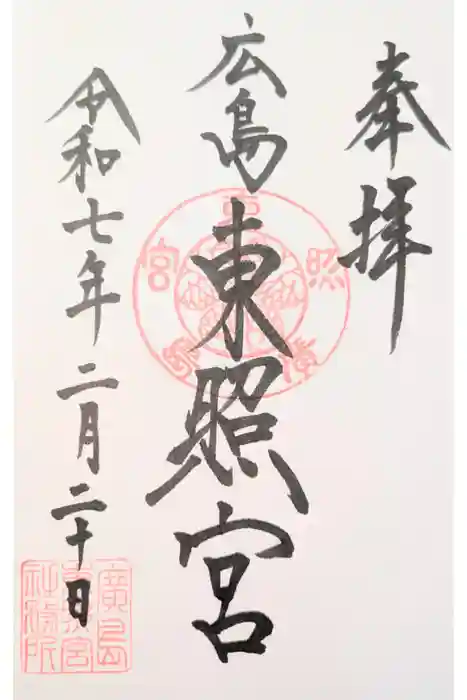 奉拝
広島東照宮
令和七年二月二十日
廣島
東照宮
社務所